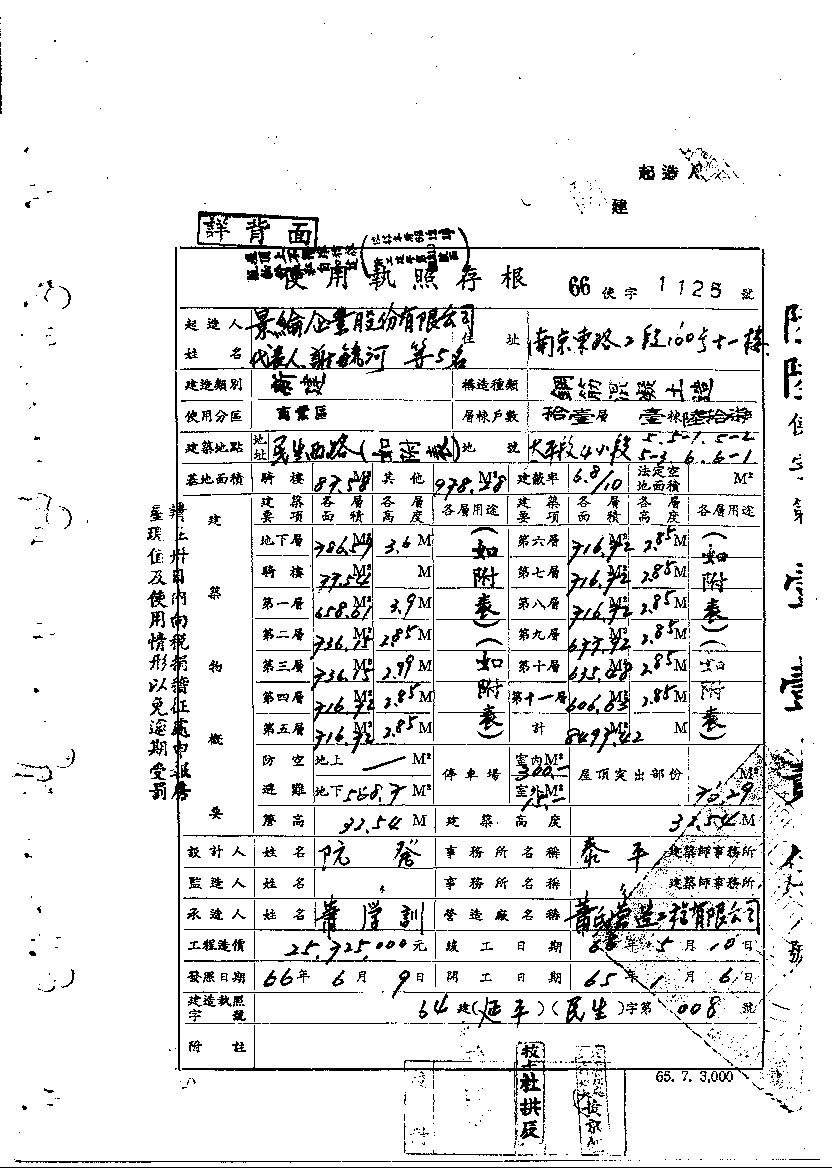 起造人
建
詳背面
使用執照存根 66 使字 1125 號
起造人姓名 景綸企業股份有限公司 代表人 謝毓河 等5名 住址 南京東路二段100號十一樓
建造類別 構造種類 鋼筋混凝土造
使用分區 商業區 層棟戶數 拾壹層 壹棟
建築地點 地址 民生西路 地號 太平段4小段 5. 5-1. 5-2 5-3. 6. 6-1
基地面積 騎樓 87.58 M² 其他 978.28 M² 建蔽率 6.8/10 法定空地面積 M²
建築物概要 建築要項 各層面積 各層高度 各層用途 建築要項 各層面積 各層高度 各層用途
地下層 786.57 M² 3.6 M (如附表) 第六層 716.92 M² 2.85 M (如附表)
騎樓 77.54 M² M 第七層 716.92 M² 2.85 M
第一層 658.61 M² 3.9 M 第八層 716.92 M² 2.85 M
第二層 736.15 M² 2.85 M (如附表) 第九層 677.92 M² 2.85 M (如附表)
第三層 736.15 M² 2.99 M 第十層 635.48 M² 2.85 M
第四層 716.92 M² 2.85 M 第十一層 606.63 M² 2.85 M
第五層 716.92 M² 2.85 M 計 8497.42 M² M
防空避難 地上 — M² 停車場 室內 M² 300.— 屋頂突出部份 M²
地下 568.7 M² 室外 M² 15.— 70.29
簷高 32.54 M 建築高度 32.54 M
設計人 姓名 阮發 事務所名稱 泰平 建築師事務所
監造人 姓名 事務所名稱 建築師事務所
承造人 姓名 蕭學訓 營造廠名稱 蕭氏營造工程有限公司
工程造價 25,925,000元 竣工日期 66年5月10日
發照日期 66年6月9日 開工日期 65年1月6日
建造執照字號 64建(延平)(民生)字第008號
附註
65. 7. 3,000
內向稅捐稽征處申報房
屋現值及使用情形以免逾期受罰
技士杜拱辰